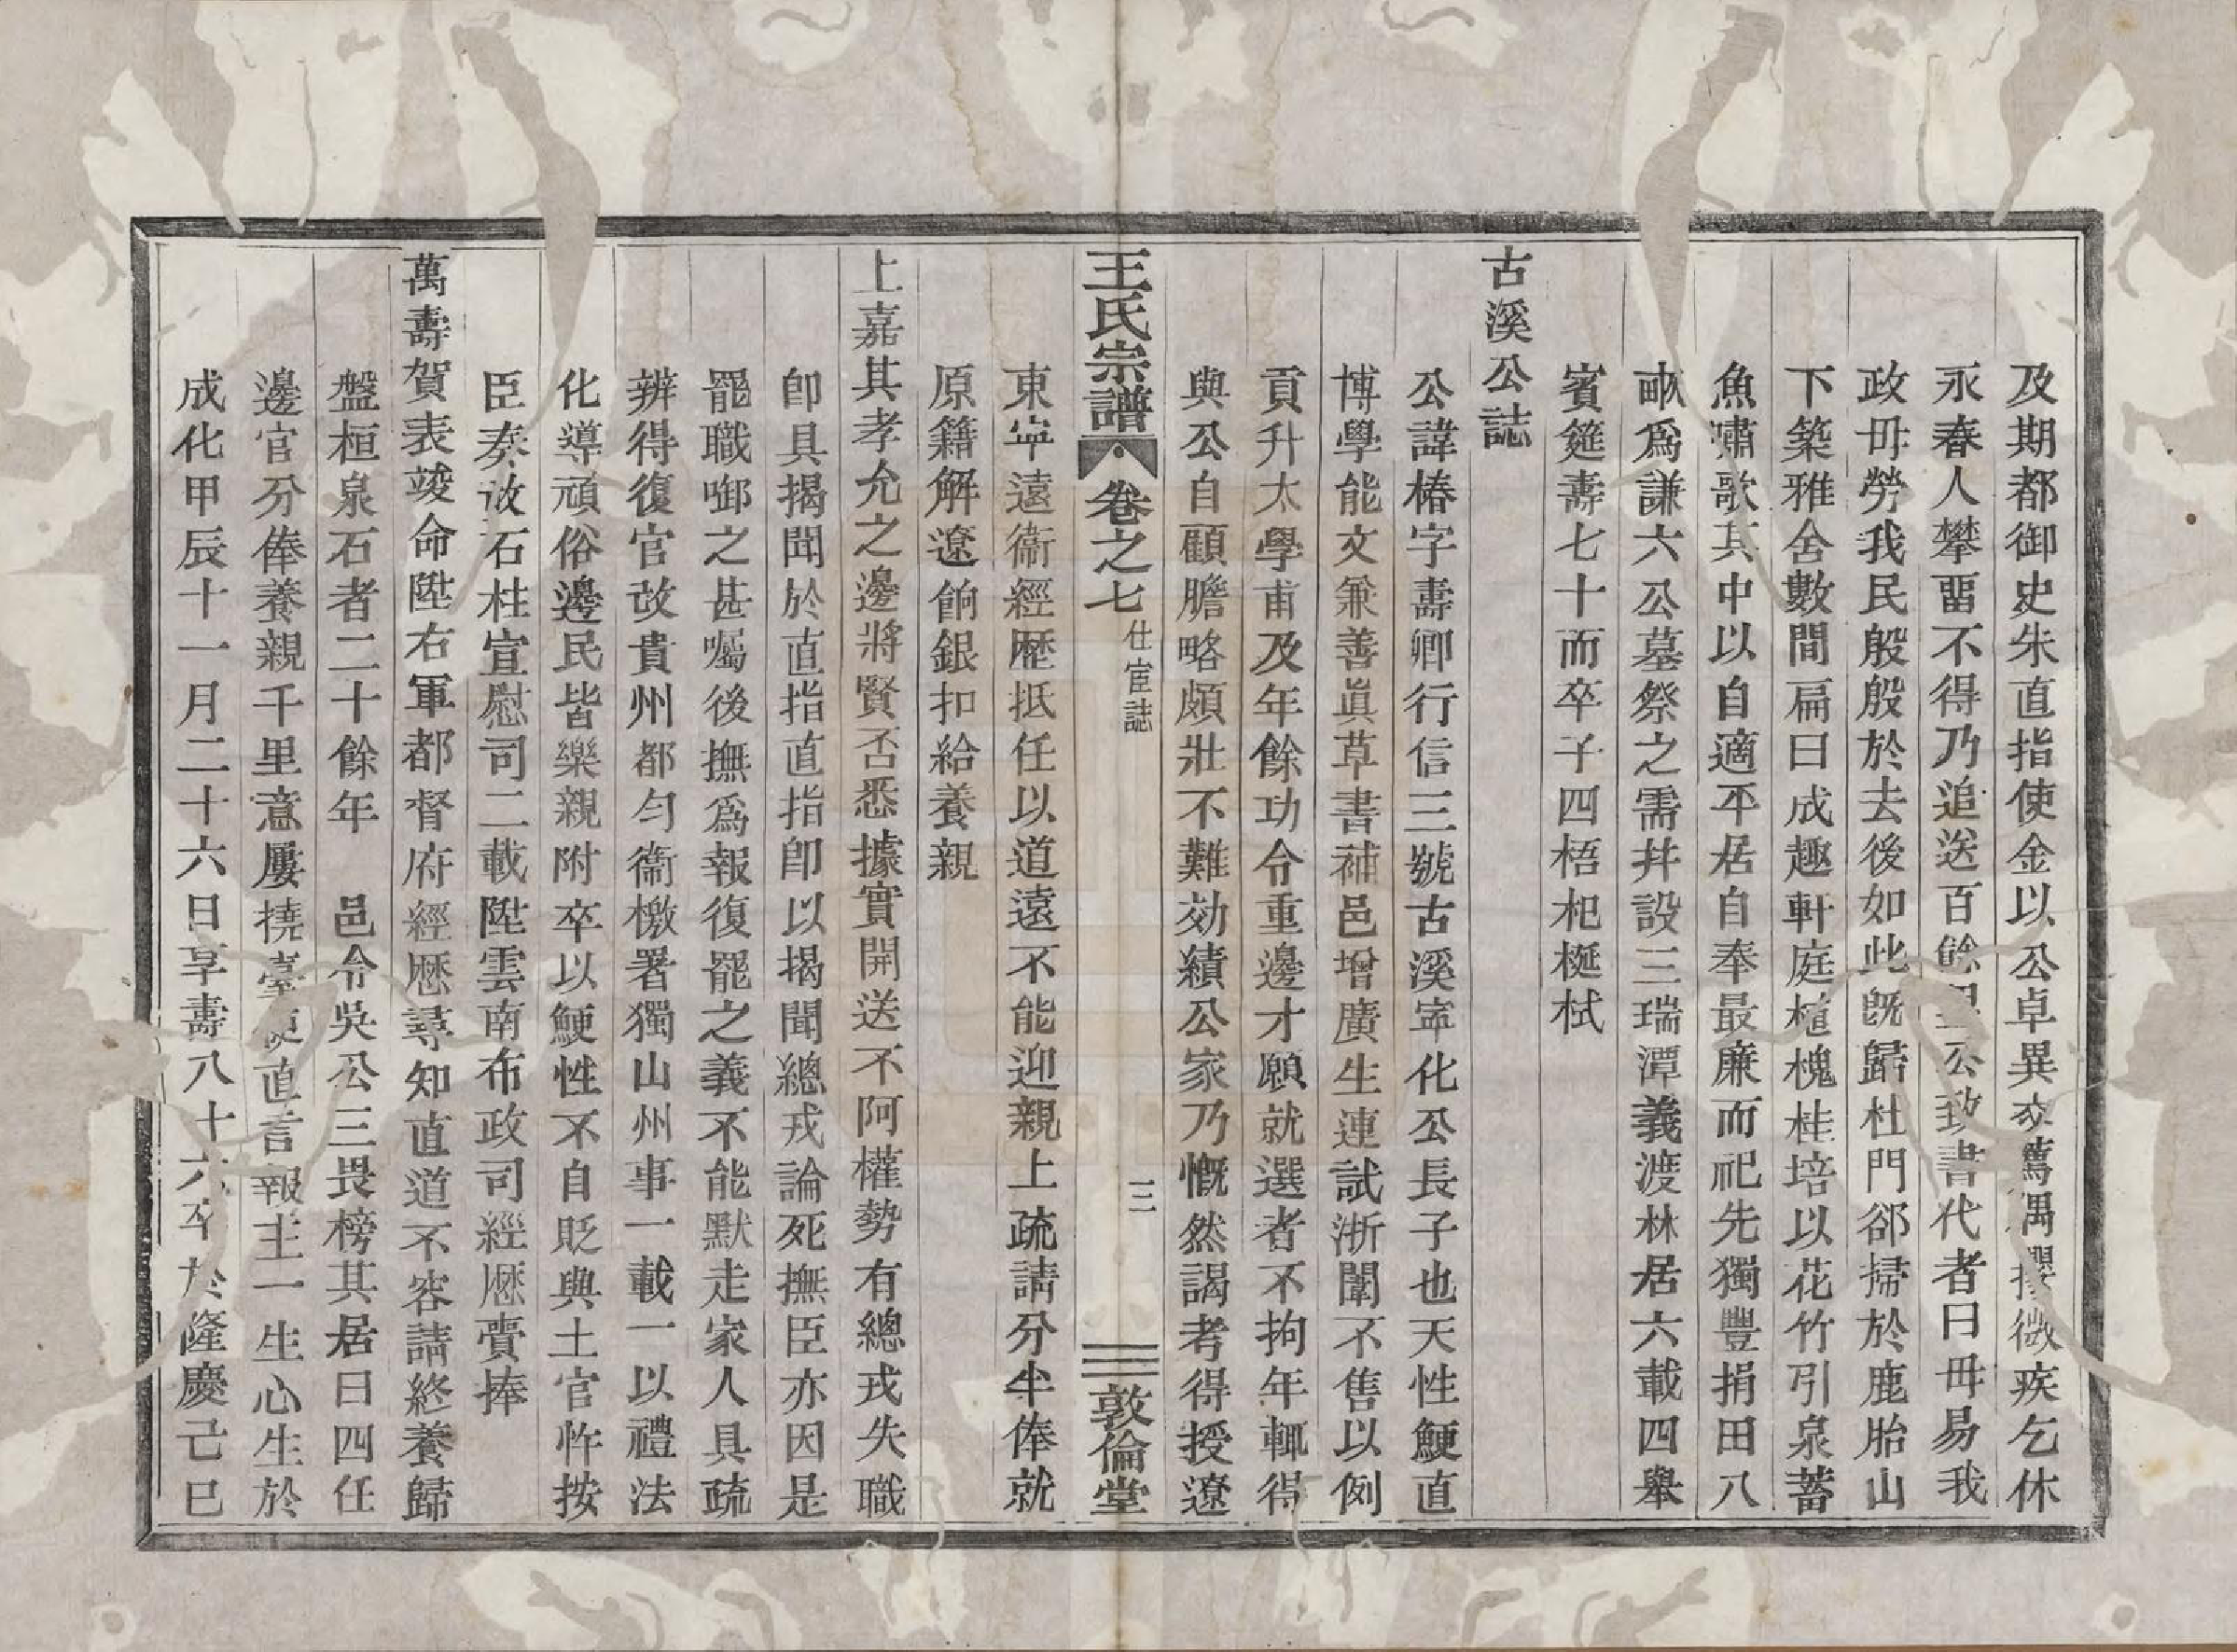 及期都御史朱直指使金以公卓異交薦偶攖微疾乞休
永春人攀畱不得乃追送百餘里公致書代者曰毋易我
政毋勞我民殷殷於去後如此旣歸杜門郤掃於鹿胎山
下築雅舍數間扁曰成趣軒庭植槐桂培以花竹引泉蓄
魚嘯歌其中以自適平居自奉最廉而祀先獨豐捐田八
畝爲謙六公墓祭之需幷設三瑞潭義渡林居六載四舉
賓筵壽七十而卒子四梧杞梴栻
古溪公誌
公諱椿字壽卿行信三號古溪寧化公長子也天性鯁直
博學能文兼善眞草書補邑增廣生連試浙闈不售以例
貢升太學甫及年餘功令重邊才願就選者不拘年輒得
與公自顧膽略頗壯不難効績公家乃慨然謁考得授遼
王氏宗譜 卷之七 仕宦誌 三 敦倫堂
東寧遠衞經歷抵任以道遠不能迎親上疏請分半俸就
原籍解遼餉銀扣給養親
上嘉其孝允之邊將賢否悉據實開送不阿權勢有總戎失職
卽具揭聞於直指直指卽以揭聞總戎論死撫臣亦因是
罷職啣之甚囑後撫爲報復罷之義不能默走家人具疏
辨得復官改貴州都勻衞檄署獨山州事一載一以禮法
化導頑俗邊民皆樂親附卒以鯁性不自貶與土官忤按
臣奏改石柱宣慰司二載陞雲南布政司經歷賫捧
萬壽賀表竣命陞右軍都督府經歷尋知直道不容請終養歸
盤桓泉石者二十餘年 邑令吳公三畏榜其居曰四任
邊官分俸養親千里意屢撓臺使直言報主一生心生於
成化甲辰十一月二十六日享壽八十六卒於隆慶己巳